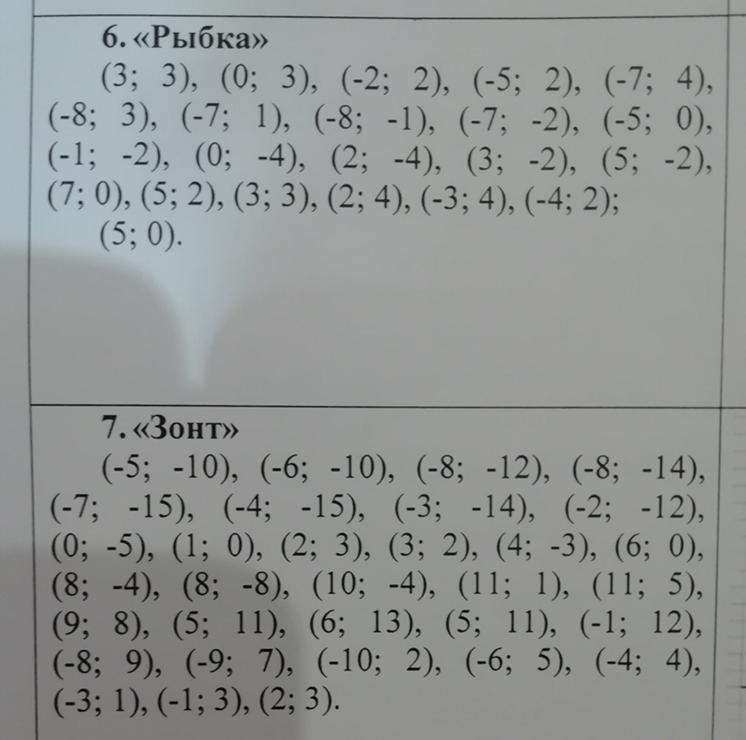 6. «Рыбка»
(3; 3), (0; 3), (-2; 2), (-5; 2), (-7; 4),
(-8; 3), (-7; 1), (-8; -1), (-7; -2), (-5; 0),
(-1; -2), (0; -4), (2; -4), (3; -2), (5; -2),
(7; 0), (5; 2), (3; 3), (2; 4), (-3; 4), (-4; 2);
(5; 0).
7. «Зонт»
(-5; -10), (-6; -10), (-8; -12), (-8; -14),
(-7; -15), (-4; -15), (-3; -14), (-2; -12),
(0; -5), (1; 0), (2; 3), (3; 2), (4; -3), (6; 0),
(8; -4), (8; -8), (10; -4), (11; 1), (11; 5),
(9; 8), (5; 11), (6; 13), (5; 11), (-1; 12),
(-8; 9), (-9; 7), (-10; 2), (-6; 5), (-4; 4),
(-3; 1), (-1; 3), (2; 3).